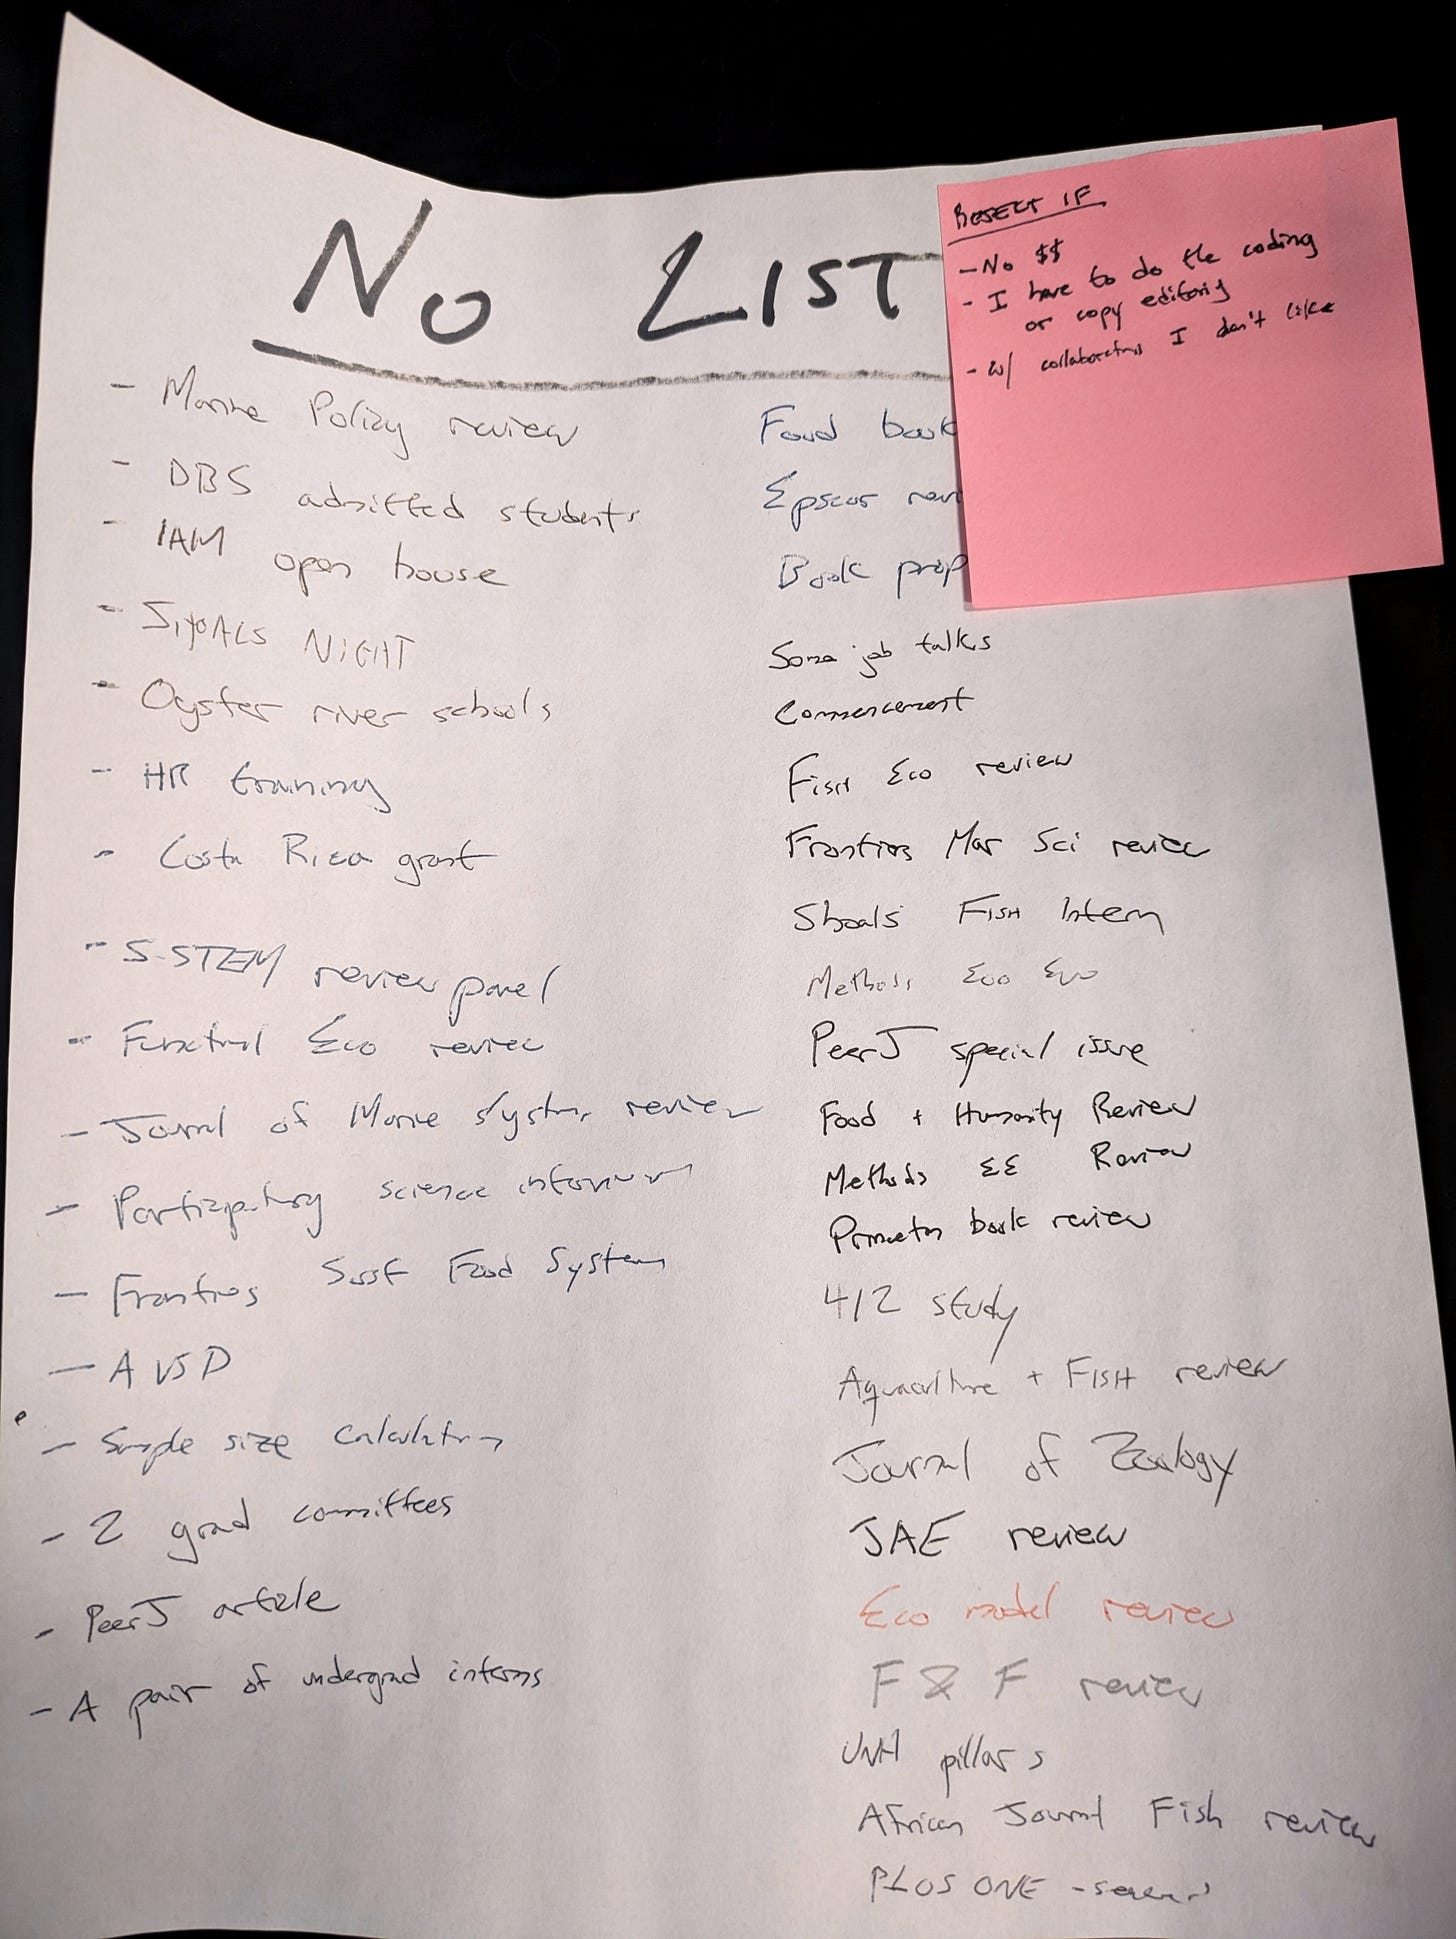 No LIST
- Marine Policy review
- DBS admitted students
- IAM open house
- NIGHT
- Oyster river schools
- HR training
- Costa Rica grant
- S-STEM review panel
- Functional Eco review
- Journal of Marine Systems review
- Participatory science interview
- Frontiers Sust Food Systems
- A VSD
- Sample size calculation
- 2 grad committees
- PeerJ article
- A pair of undergrad interns
REJECT IF
- No $$
- I have to do the coding
or copy editing
- w/ collaborators I don't like
Food book
Epscor revi
Book prop
Some job talks
Commencement
FISH Eco review
Frontiers Mar Sci review
Shoals FISH Intern
Methods Eco Evo
PeerJ special issue
Food + Humanity Review
Methods EE Review
Princeton book review
412 study
Aquaculture + FISH review
Journal of Zoology
JAE review
Eco model review
F & F review
UNH pillars
African Journal Fish review
PLOS ONE - several